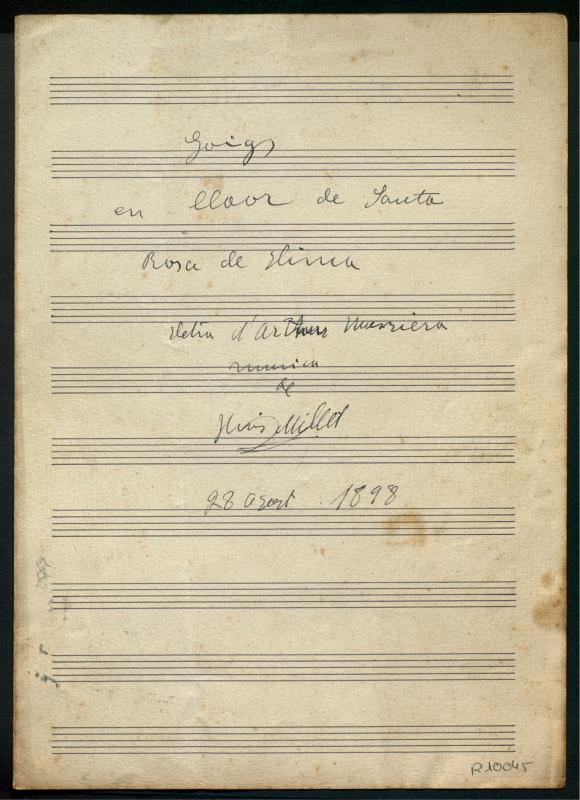 Goigs
en llaor de Santa
Rosa de Llima
Lletra d'Arthur Masriera
musica
de
Lluis Millet
28 agost 1898
R.10045